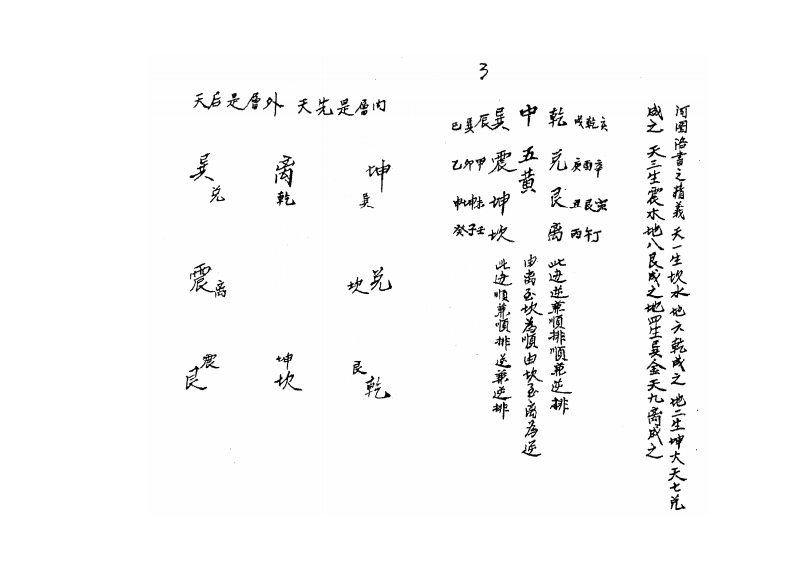 3
河圖洛書之精義 天一生坎水 地六乾成之 地二生坤火天七兌
成之 天三生震木地八艮成之地四生巽金天九离成之
戌乾亥
庚酉辛
丑艮寅
丙午丁
乾兌艮离
此边逆兼順排順兼逆排
中五黄
由离至坎為順由坎至离為逆
巽震坤坎
此边順兼順排逆兼逆排
巳巽辰
乙卯甲
申坤未
癸子壬
天后是層外 天先是層内
巽 离 坤
兌 乾 巽
震离 坎兌
震 坤 艮
艮 坎 乾